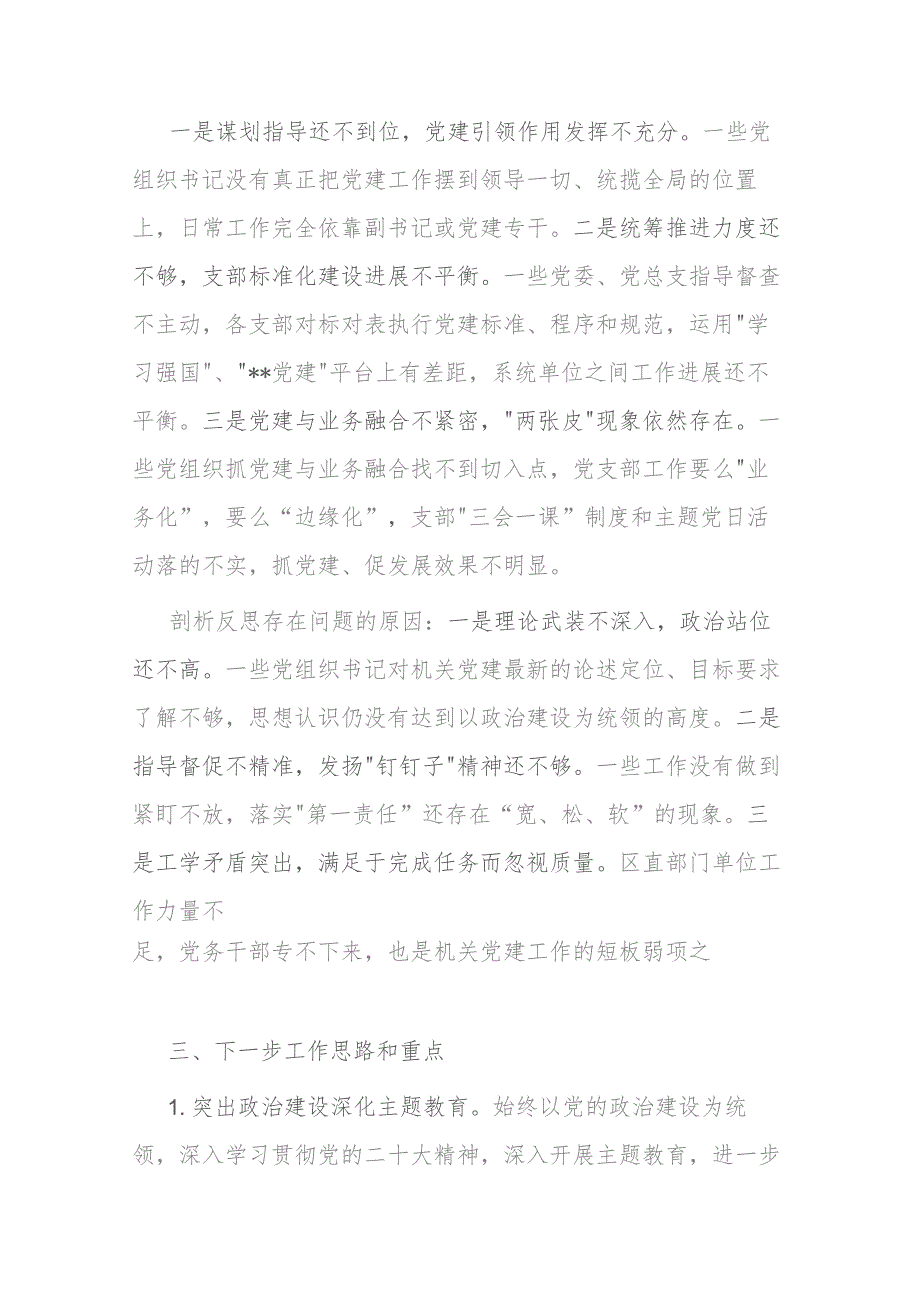 一是谋划指导还不到位，党建引领作用发挥不充分。一些党
组织书记没有真正把党建工作摆到领导一切、统揽全局的位置
上，日常工作完全依靠副书记或党建专干。二是统筹推进力度还
不够，支部标准化建设进展不平衡。一些党委、党总支指导督查
不主动，各支部对标对表执行党建标准、程序和规范，运用"学
习强国"、"**党建"平台上有差距，系统单位之间工作进展还不
平衡。三是党建与业务融合不紧密，"两张皮"现象依然存在。一
些党组织抓党建与业务融合找不到切入点，党支部工作要么"业
务化”，要么“边缘化”，支部"三会一课”制度和主题党日活
动落的不实，抓党建、促发展效果不明显。
剖析反思存在问题的原因：一是理论武装不深入，政治站位
还不高。一些党组织书记对机关党建最新的论述定位、目标要求
了解不够，思想认识仍没有达到以政治建设为统领的高度。二是
指导督促不精准，发扬"钉钉子"精神还不够。一些工作没有做到
紧盯不放，落实"第一责任”还存在“宽、松、软”的现象。三
是工学矛盾突出，满足于完成任务而忽视质量。区直部门单位工
作力量不
足，党务干部专不下来，也是机关党建工作的短板弱项之
三、下一步工作思路和重点
1.突出政治建设深化主题教育。始终以党的政治建设为统
领，深入学习贯彻党的二十大精神，深入开展主题教育，进一步